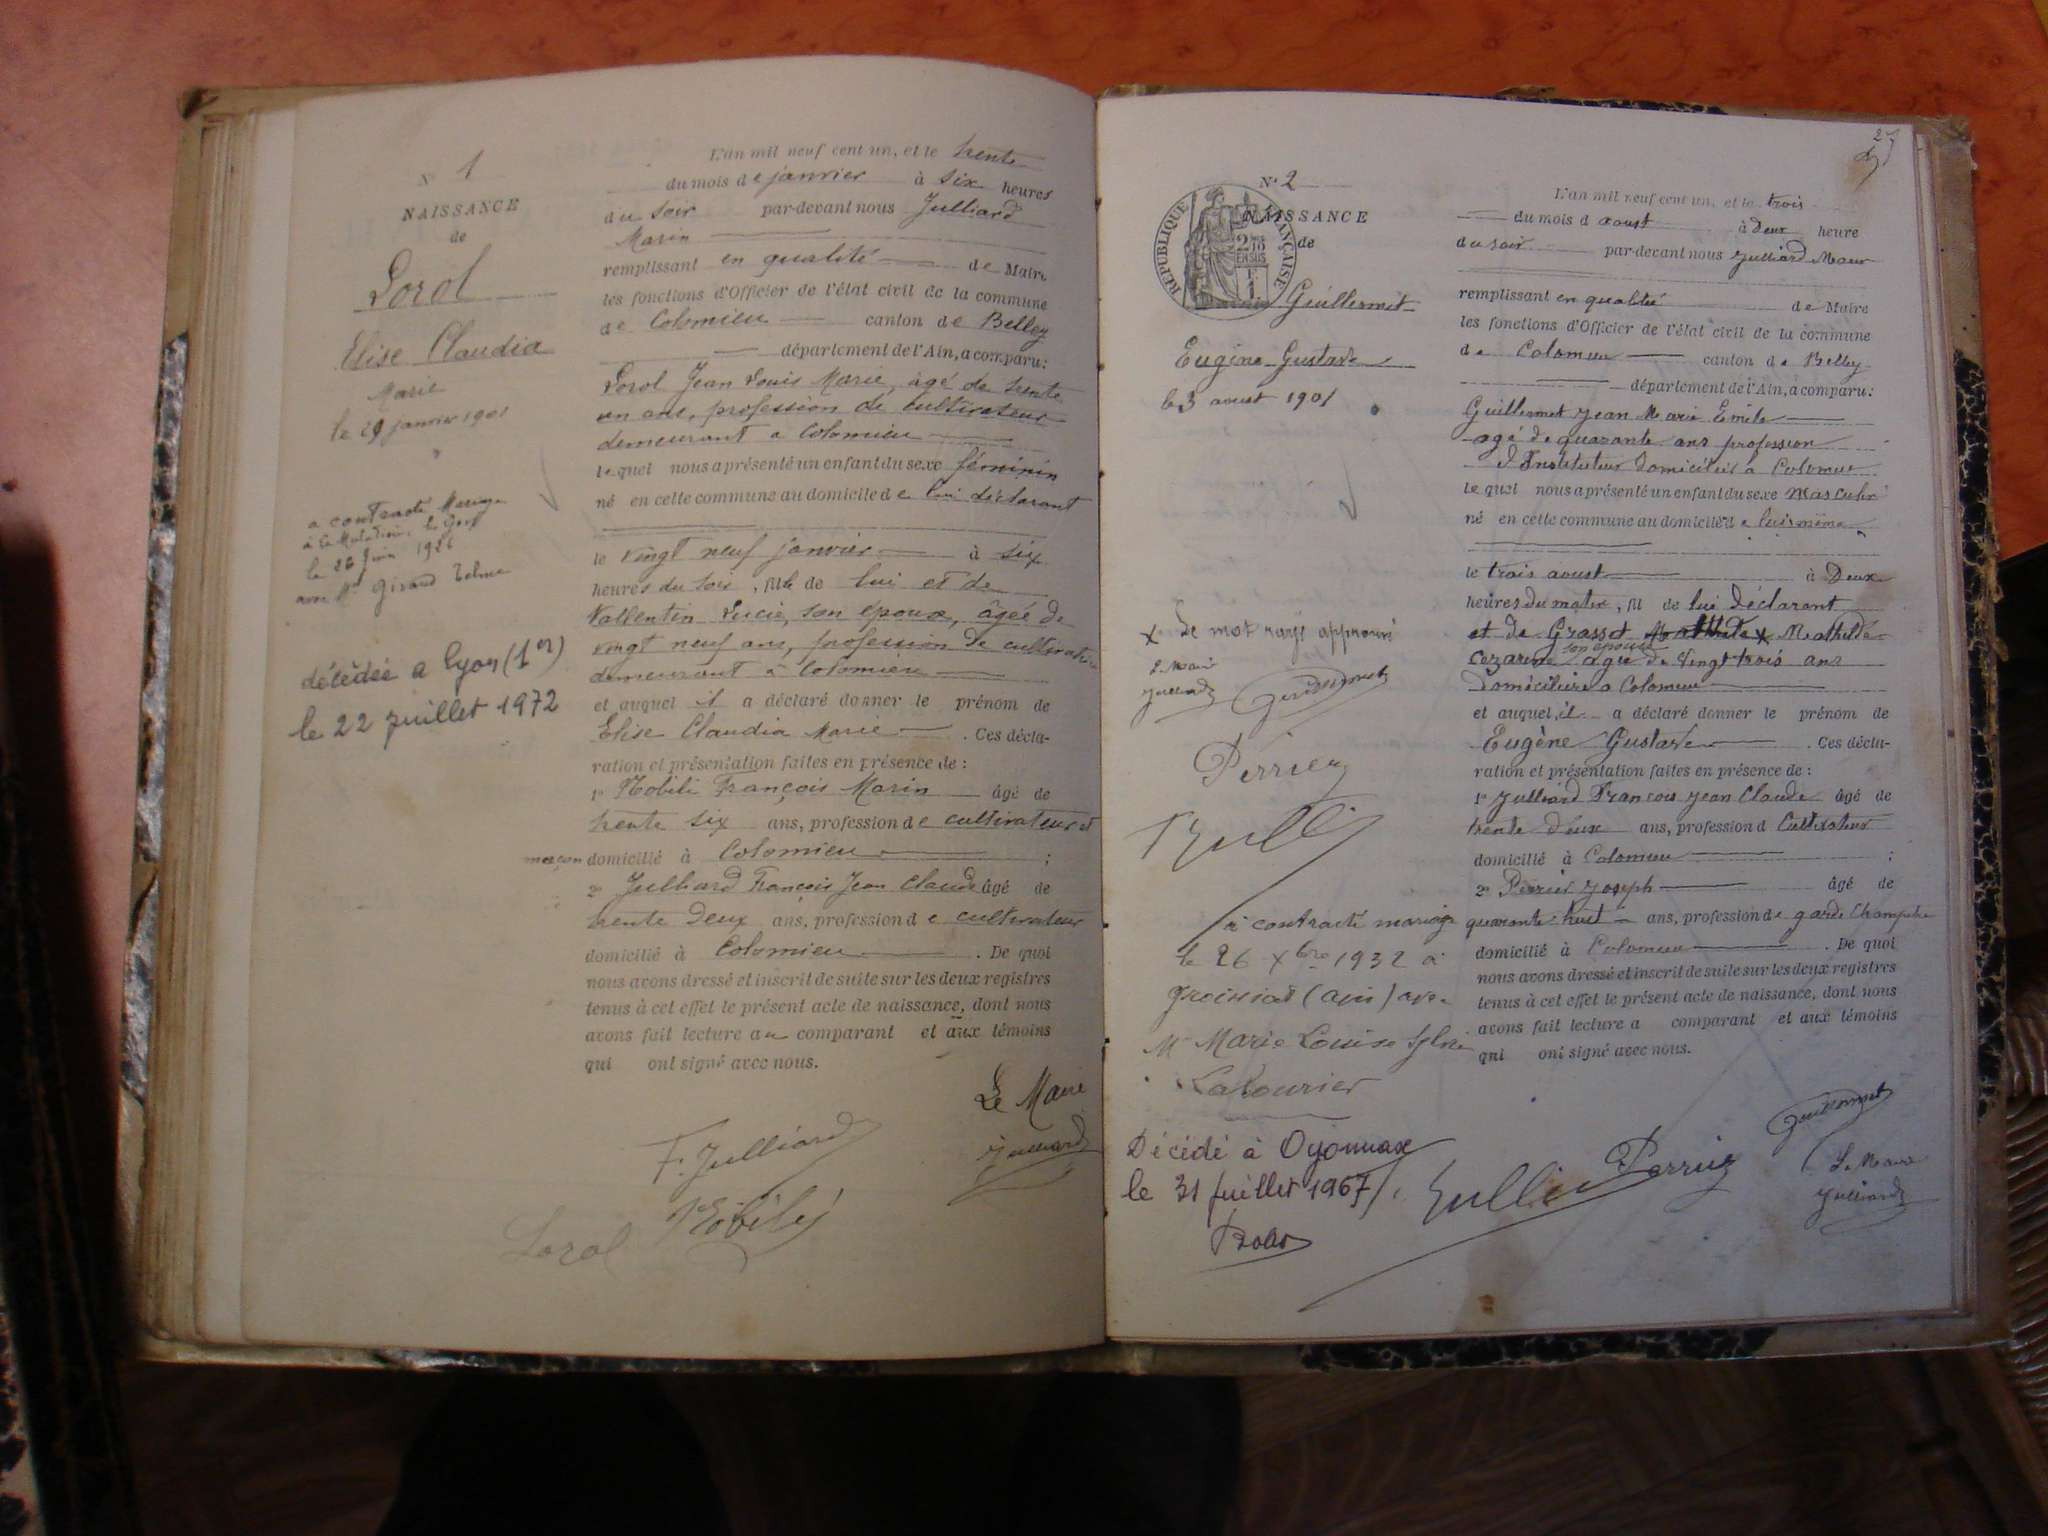 N° 1
NAISSANCE
de
Lorol
Elise Claudia
Marie
le 29 janvier 1901
a contracté Mariage
à la
le 26 Juin 1926
avec Mr Giraud
décédée a Lyon (1er)
le 22 juillet 1972
L'an mil neuf cent un, et le trente
du mois de janvier à six heures
du soir par-devant nous Julliard
Marin
remplissant en qualité de Maire
les fonctions d'Officier de l'état civil de la commune
de Colomieu canton de Belley
département de l'Ain, a comparu:
Lorol Jean Louis Marie, âgé de trente
un ans, profession de cultivateur
demeurant a Colomieu
lequel nous a présenté un enfant du sexe féminin
né en cette commune au domicile de lui déclarant
le vingt neuf janvier à six
heures du soir, fille de lui et de
Vallentin Lucie, son épouse, âgée de
vingt neuf ans, profession de cultivatrice
demeurant à Colomieu
et auquel il a déclaré donner le prénom de
Elise Claudia Marie. Ces décla-
ration et présentation faites en présence de :
1° Robili François Marin âgé de
trente six ans, profession de cultivateur et
maçon domicilié à Colomieu ;
2° Julliard François Jean Claude âgé de
trente deux ans, profession de cultivateur
domicilié à Colomieu. De quoi
nous avons dressé et inscrit de suite sur les deux registres
tenus à cet effet le présent acte de naissance, dont nous
avons fait lecture au comparant et aux témoins
qui ont signé avec nous.
Le Maire
F. Julliard Julliard
Lorol
27
N° 2
RÉPUBLIQUE FRANÇAISE
NAISSANCE
de
Guillermet
Eugène Gustave
le 3 aoust 1901
x Le mot rayé approuvé
Le Maire
Julliard Guillermet
Perrier
a contracté mariage
le 26 Xbre 1932 à
Groissiat (Ain) avec
Marie Louise
Décédé à Oyonnax
le 31 Juillet 1967
L'an mil neuf cent un, et le trois
du mois d aoust à Deux heure
du soir par-devant nous Julliard Marin
remplissant en qualité de Maire
les fonctions d'Officier de l'état civil de la commune
de Colomieu canton de Belley
département de l'Ain, a comparu:
Guillermet Jean Marie Emile
agé de quarante ans profession
d'Instituteur Domicilié a Colomieu
lequel nous a présenté un enfant du sexe Masculin
né en cette commune au domicile de lui même
le trois aoust à Deux
heures du matin, fil de lui déclarant
et de Grassot x Mathilde
Cezarine son épouse agée de Vingt trois ans
Domiciliée a Colomieu
et auquel il a déclaré donner le prénom de
Eugène Gustave. Ces décla-
ration et présentation faites en présence de :
1° Julliard François Jean Claude âgé de
trente deux ans, profession d Cultivateur
domicilié à Colomieu ;
2° Perrier Joseph âgé de
quarante huit ans, profession de garde Champetre
domicilié à Colomieu. De quoi
nous avons dressé et inscrit de suite sur les deux registres
tenus à cet effet le présent acte de naissance, dont nous
avons fait lecture a comparant et aux témoins
qui ont signé avec nous.
Guillermet
Perrier
Le Maire
Julliard